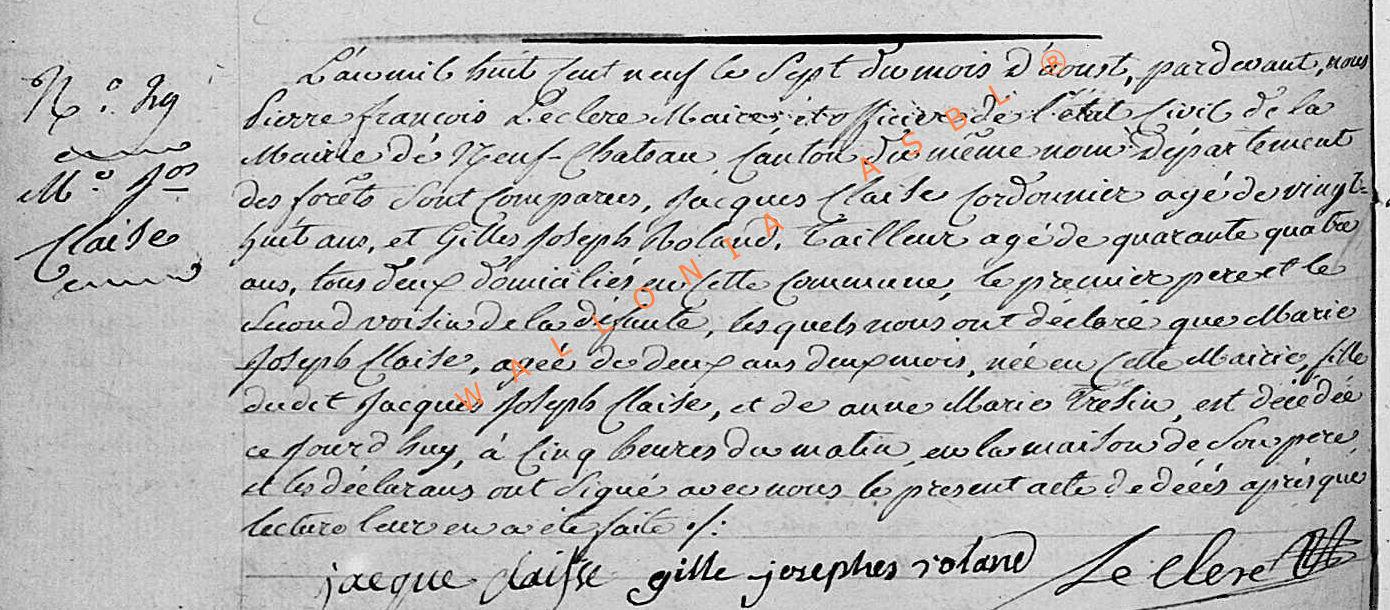 N.° 29
M.e Jos
Claise
L'an mil huit cent neuf le Sept du mois d'aoust, pardevant, nous
Pierre françois Leclere Maire, et officier de l'état Civil de la
Mairie dé Neuf-Chateau Canton du même nom Département
des forêts Sont comparus, Jacques Claise Cordonnier agé de vingt-
huit ans, et Gilles Joseph Roland, Tailleur agé de quarante quatre
ans, tous deux domiciliés en Cette Commune, le premier pere et le
Second voisin de la défunte, lesquels nous ont déclaré que Marie
Joseph Claise, agée de deux ans deux mois, née en Cette Mairie, fille
dudit Jacques Joseph Claise, et de anne Marie Tresin, est décédée
ce Jourd'huy, à Cinq heures du matin, en la maison de Son pere
et les déclarans ont Signé avec nous le present acte de décés aprés que
lecture leur en a été faite ./:
jacque claisse gille josephes roland Le Clere
WALLONIA ASBL ®